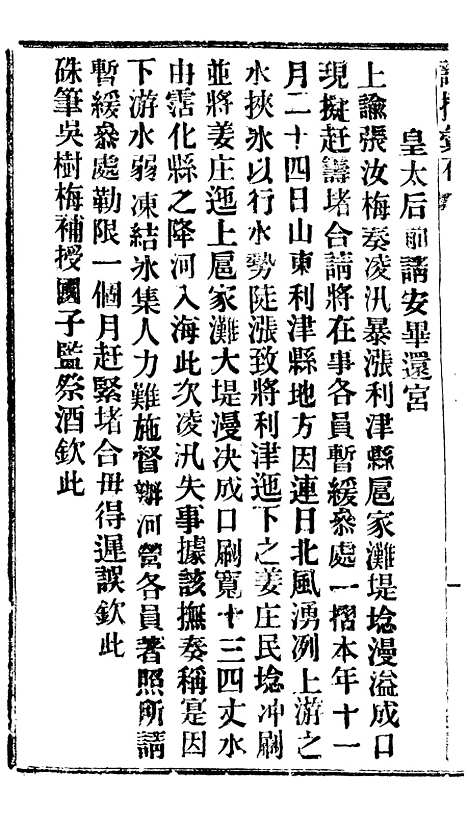 皇太后前請安畢還宮
上諭張汝梅奏凌汛暴漲利津縣扈家灘堤埝漫溢成口
現擬赶籌堵合請將在事各員暫緩叅處一摺本年十一
月二十四日山東利津縣地方因連日北風湧冽上游之
水挾氷以行水勢陡漲致將利津迤下之姜庄民埝冲刷
並將姜庄迤上扈家灘大堤漫决成口刷寬十三四丈水
由霑化縣之降河入海此次凌汛失事據該撫奏稱寔因
下游水弱凍結氷集人力難施督辦河營各員著照所請
暫緩叅處勒限一個月赶緊堵合毋得遲誤欽此
硃筆吳樹梅補授國子監祭酒欽此